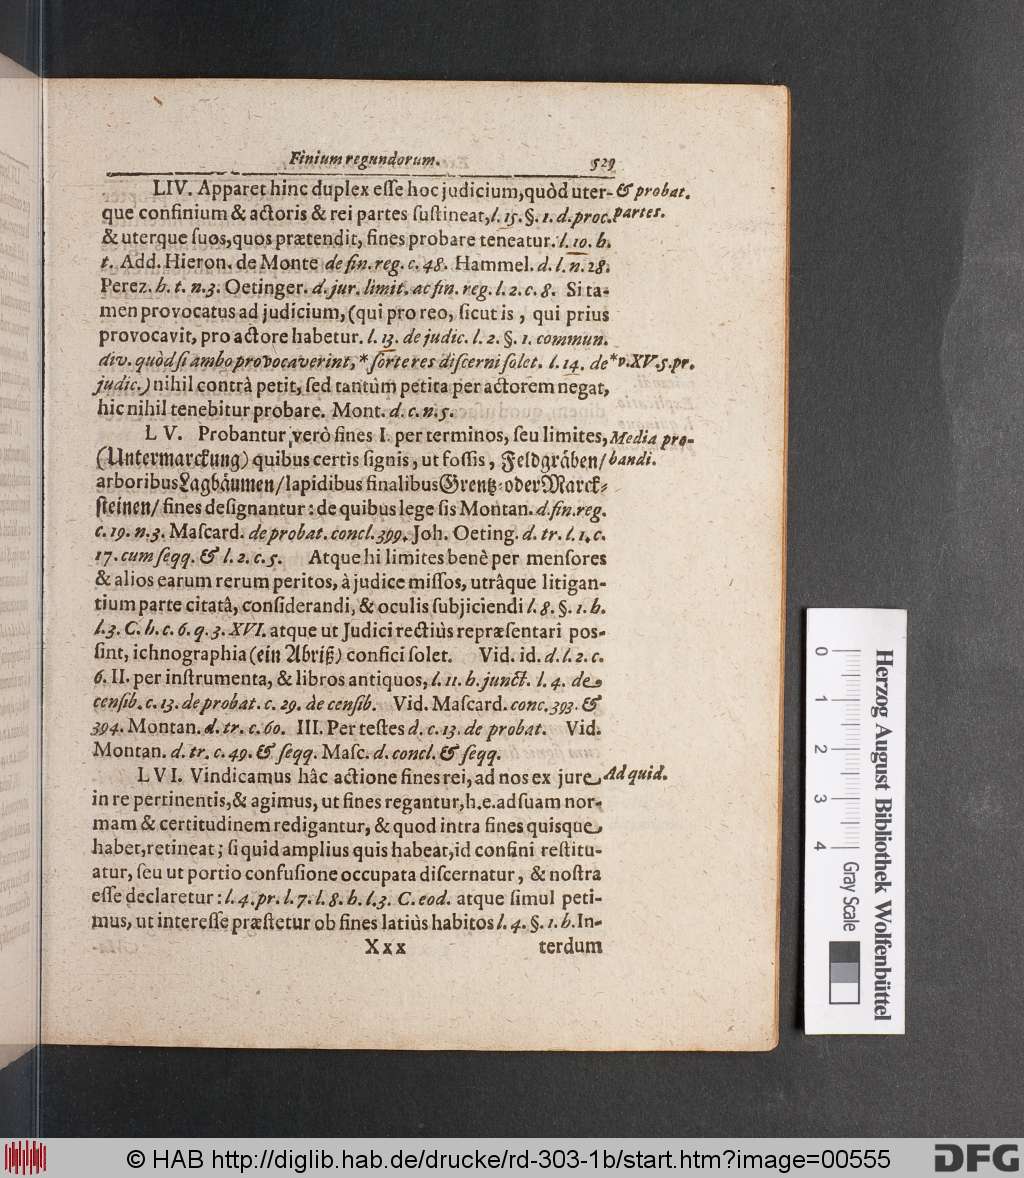 Finium regundorum. 529
LIV. Apparet hinc duplex eſſe hoc judicium, quòd uter- & probat.
que confinium & actoris & rei partes ſuſtineat, l. 15. §. 1. d. proc. partes.
& uterque ſuos, quos prætendit, fines probare teneatur. l. 10. h.
t. Add. Hieron. de Monte de fin. reg. c. 48. Hammel. d. l. n. 28.
Perez. h. t. n. 3. Oetinger. d. jur. limit. ac fin. reg. l. 2. c. 8. Si ta-
men provocatus ad judicium, (qui pro reo, ſicut is, qui prius
provocavit, pro actore habetur. l. 13. de judic. l. 2. §. 1. commun.
div. quòd ſi ambo provocaverint, * ſorte res diſcerni ſolet. l. 14. de * v. XV. 5. pr.
judic.) nihil contrà petit, ſed tantùm petita per actorem negat,
hic nihil tenebitur probare. Mont. d. c. n. 5.
LV. Probantur verò fines I. per terminos, ſeu limites, Media pro-
(Untermarckung) quibus certis ſignis, ut foſſis, Feldgräben/ bandi.
arboribus Lagbäumen/ lapidibus finalibus Grentz- oder Marck-
ſteinen/ fines deſignantur: de quibus lege ſis Montan. d. fin. reg.
c. 19. n. 3. Maſcard. de probat. concl. 399. Joh. Oeting. d. tr. l. 1. c.
17. cum ſeqq. & l. 2. c. 5. Atque hi limites benè per menſores
& alios earum rerum peritos, à judice miſſos, utrâque litigan-
tium parte citatâ, conſiderandi, & oculis ſubjiciendi l. 8. §. 1. h.
l. 3. C. h. c. 6. q. 3. XVI. atque ut Judici rectiùs repræſentari poſ-
ſint, ichnographia (ein Abriß) confici ſolet. Vid. id. d. l. 2. c.
6. II. per inſtrumenta, & libros antiquos, l. 11. h. junct. l. 4. de
cenſib. c. 13. de probat. c. 29. de cenſib. Vid. Maſcard. conc. 393. &
394. Montan. d. tr. c. 60. III. Per teſtes d. c. 13. de probat. Vid.
Montan. d. tr. c. 49. & ſeqq. Maſc. d. concl. & ſeqq.
LVI. Vindicamus hâc actione fines rei, ad nos ex jure Ad quid.
in re pertinentis, & agimus, ut fines regantur, h. e. ad ſuam nor-
mam & certitudinem redigantur, & quod intra fines quisque
habet, retineat; ſi quid amplius quis habeat, id confini reſtitu-
atur, ſeu ut portio confuſione occupata diſcernatur, & noſtra
eſſe declaretur: l. 4. pr. l. 7. l. 8. h. l. 3. C. eod. atque ſimul peti-
mus, ut intereſſe præſtetur ob fines latiùs habitos l. 4. §. 1. h. In-
Xxx terdum
0 1 2 3 4
Herzog August Bibliothek Wolfenbüttel
Gray Scale
© HAB http://diglib.hab.de/drucke/rd-303-1b/start.htm?image=00555
DFG